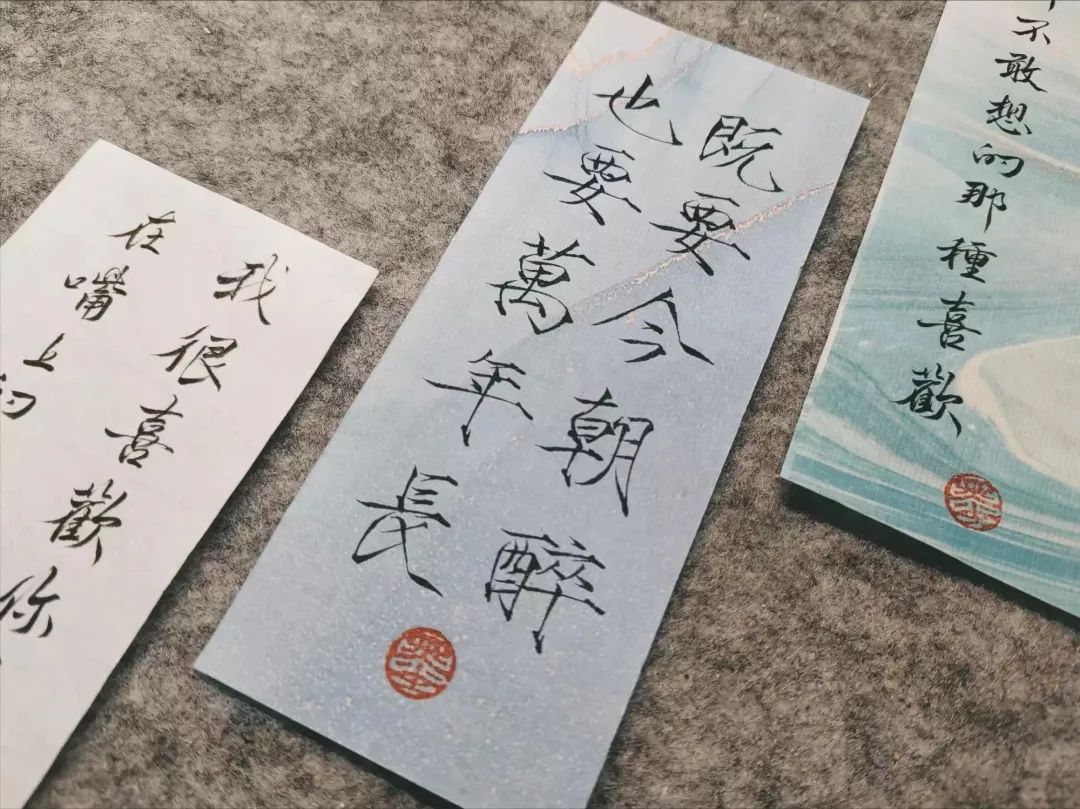 既要今朝醉
也要萬年長
我很喜歡你
在嘴上的
不敢想的那種喜歡